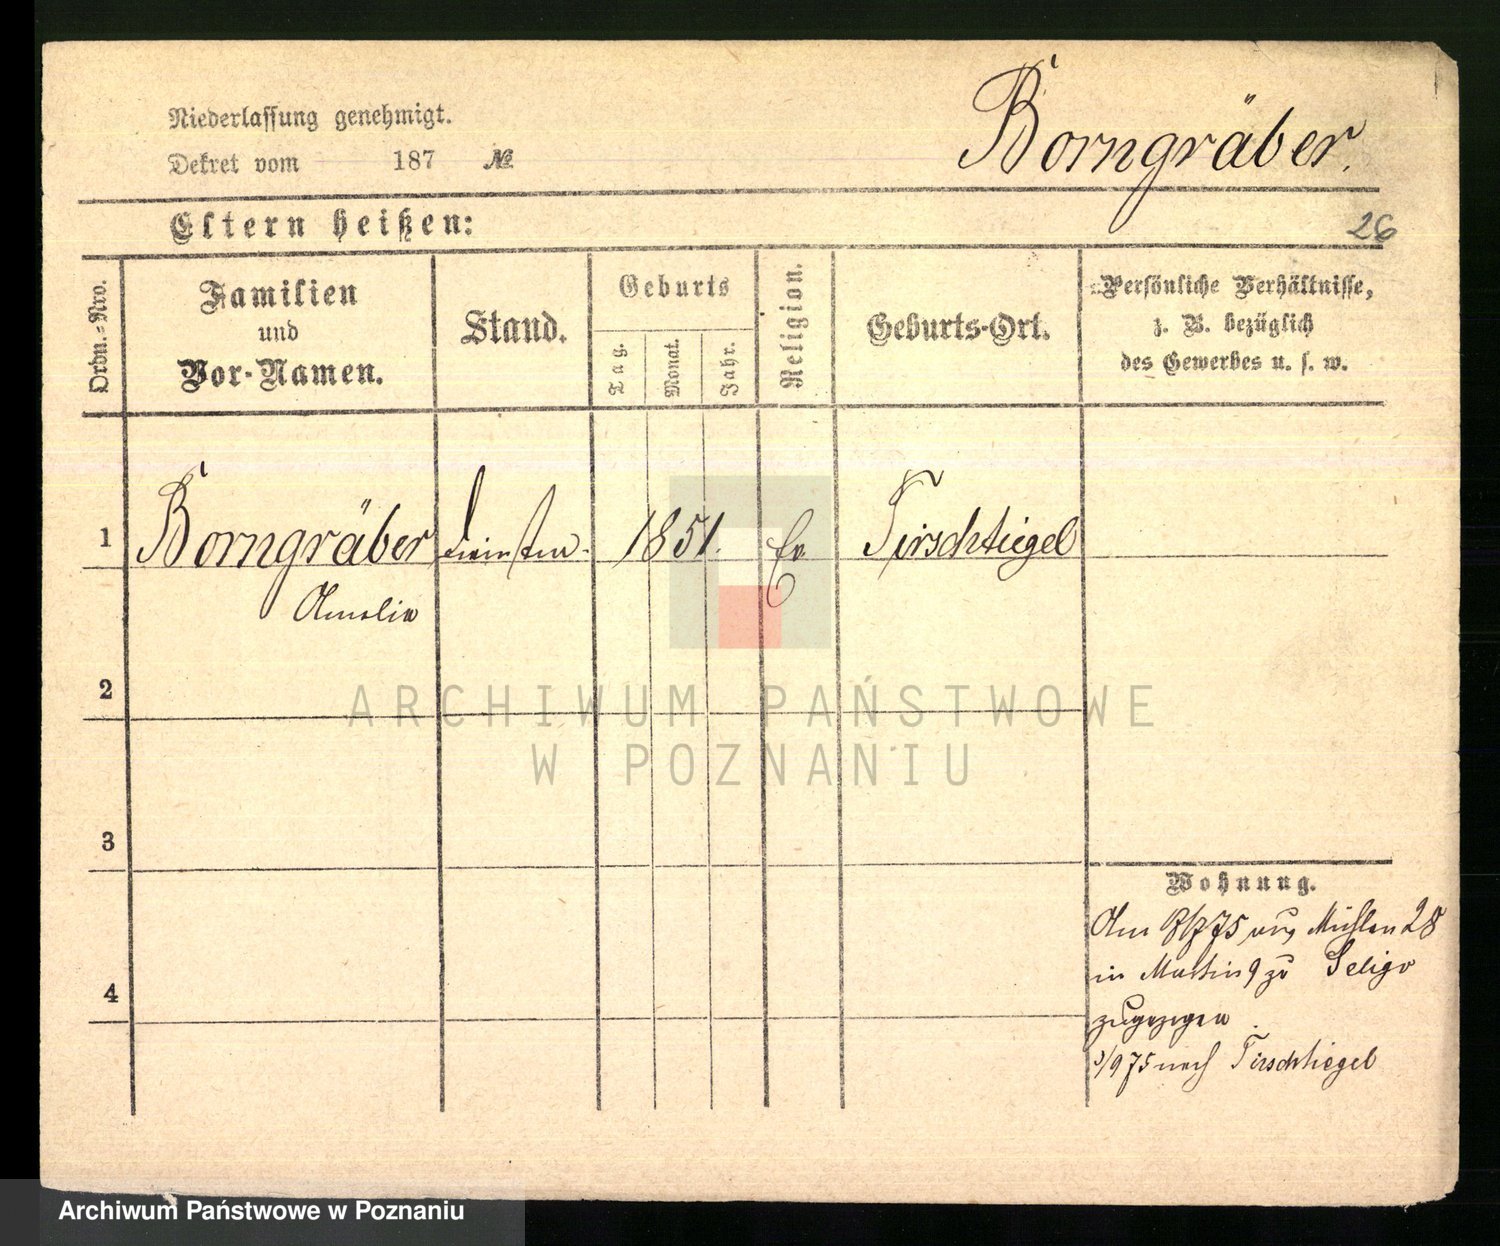 Niederlassung genehmigt.
Dekret vom 187 №
Borngräber.
Eltern heißen:
26
Ordn.-Nro.
Familien
und
Vor-Namen.
Stand.
Geburts
Tag.
Monat.
Jahr.
Religion.
Geburts-Ort.
Persönliche Verhältnisse,
z. B. bezüglich
des Gewerbes u. s. w.
1
Borngräber
1851.
Ev
Tirschtiegel
Amalie
2
ARCHIWUM PAŃSTWOWE
W POZNANIU
3
Wohnung.
Am 75 Mühlen 28
in Martin 9 zu Selige
zugezogen
/9 75 nach Tirschtiegel
4
Archiwum Państwowe w Poznaniu